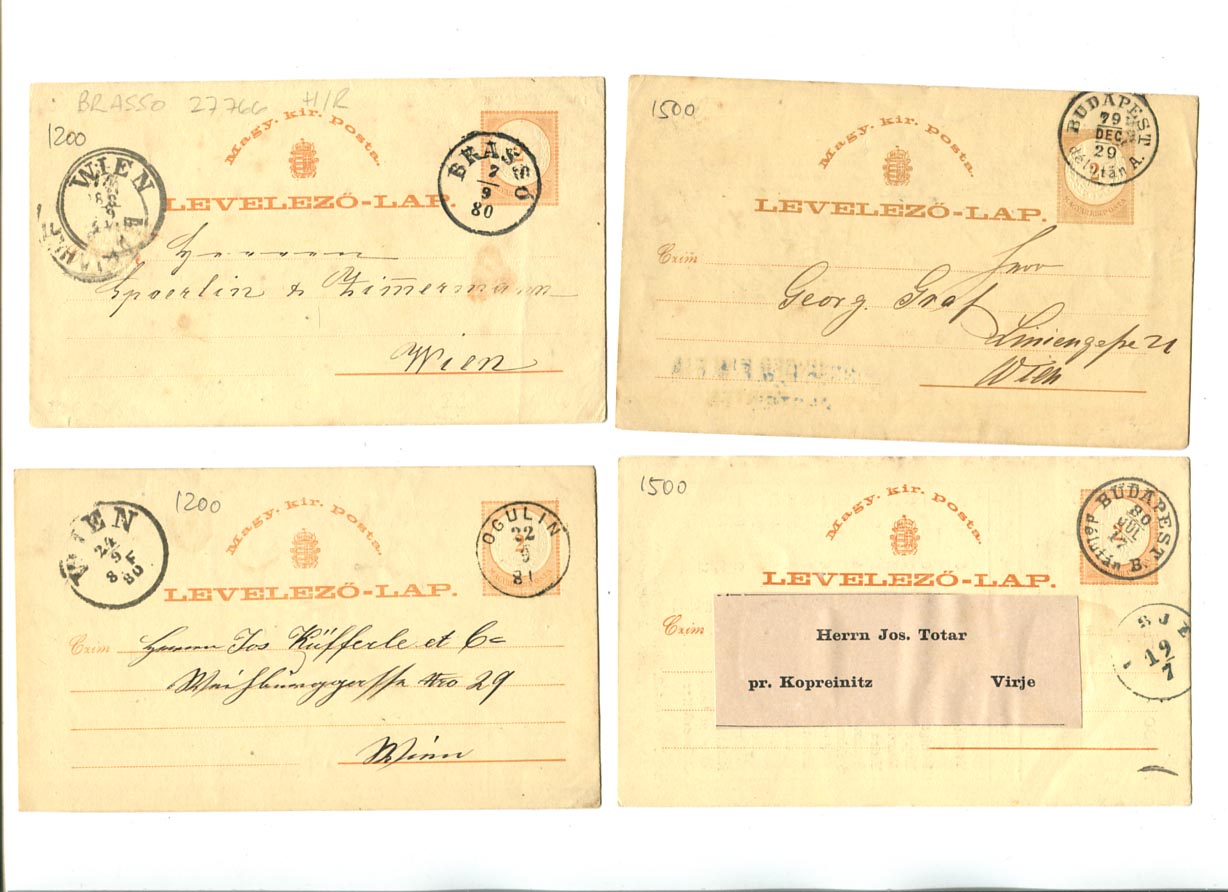 BRASSO 27766 H/R
1200
Magy. kir. posta.
LEVELEZŐ-LAP.
WIEN
BRASSÓ
7
9
80
Herren
Spoerlin & Zimmermann
Wien
1500
Magy. kir. posta.
LEVELEZŐ-LAP.
BUDAPEST
79
DEC.
29
délután A.
Czim
Herr
Georg Graf
Liniengasse 21
Wien
1200
Magy. kir. posta.
LEVELEZŐ-LAP.
WIEN
24
9
8 F
80
OGULIN
22
9
8
Czim
Herrn Jos Küfferle et Co
Weihburggasse Nro 29
Wien
1500
Magy. kir. posta.
LEVELEZŐ-LAP.
BUDAPEST B.
80
JUL
17
délután
Czim
Herrn Jos. Totar
pr. Kopreinitz Virje
19
7